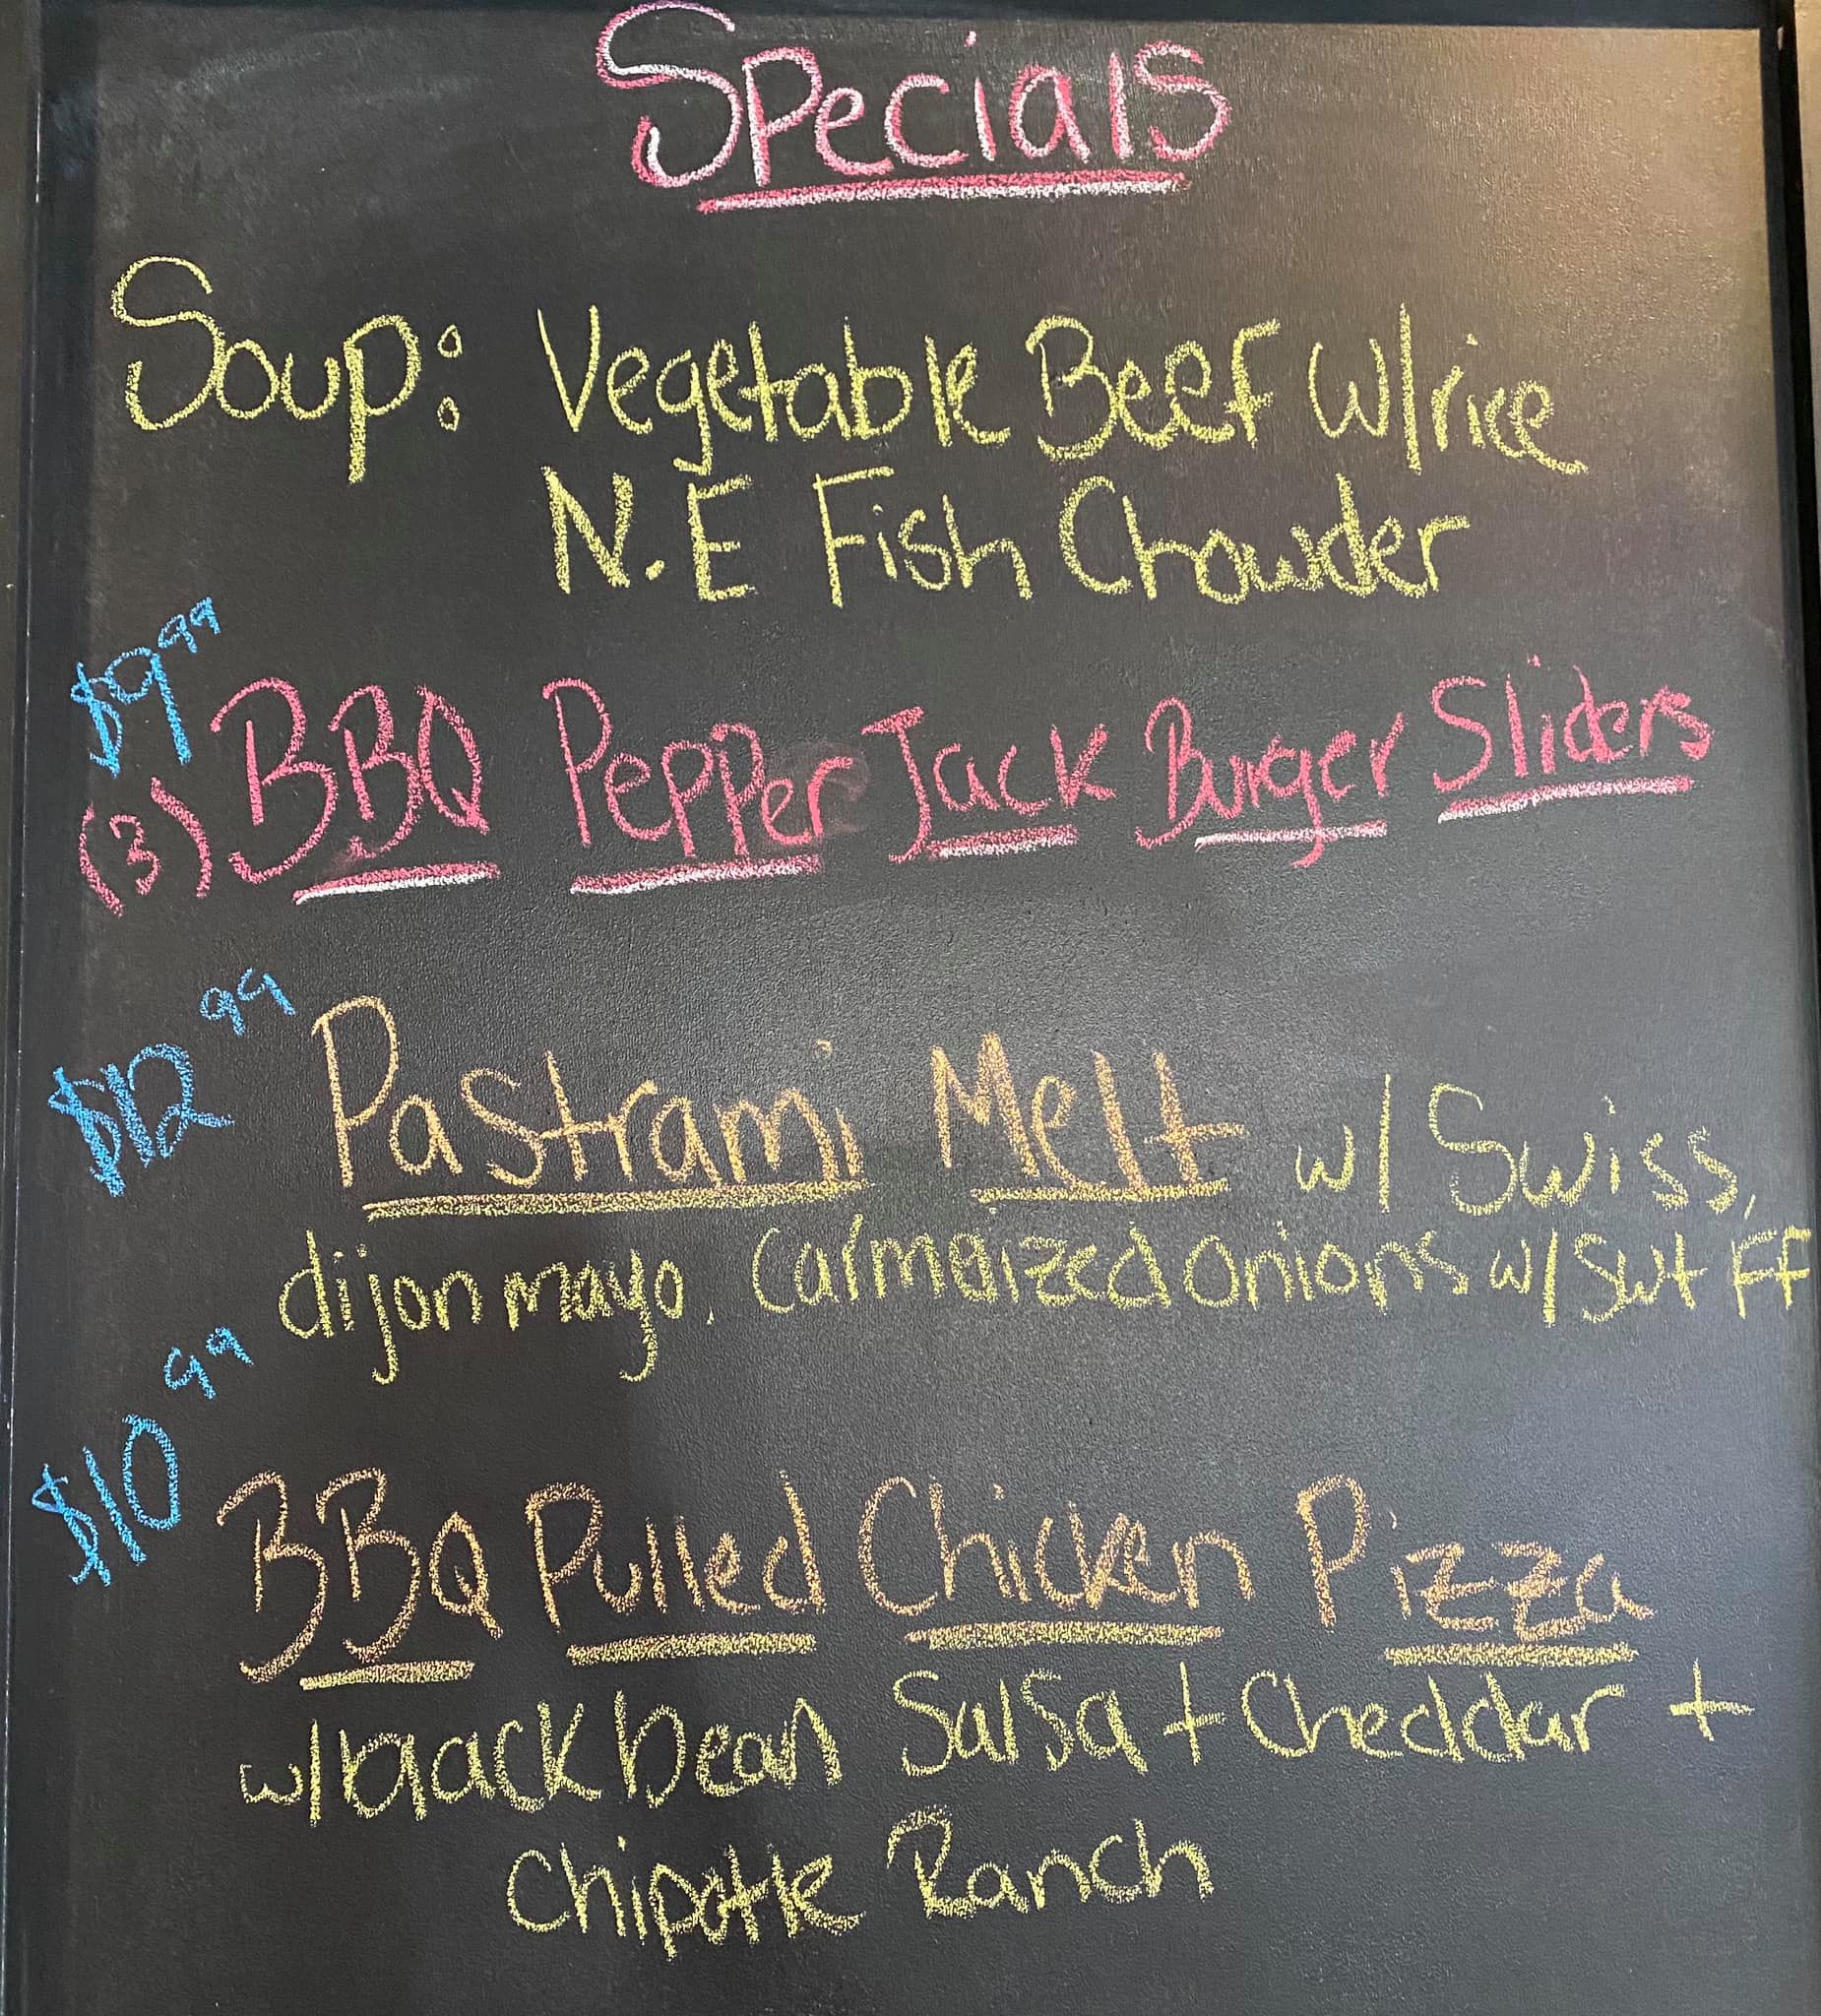 Specials
Soup: Vegetable Beef w/rice
N.E Fish Chowder
$9.99
(3) BBQ Pepper Jack Burger Sliders
$12.99
Pastrami Melt w/ Swiss,
dijon mayo, Carmaized onions w/ Swt FF
$10.99
BBQ Pulled Chicken Pizza
w/black bean Salsa + Cheddar +
Chipotle Ranch